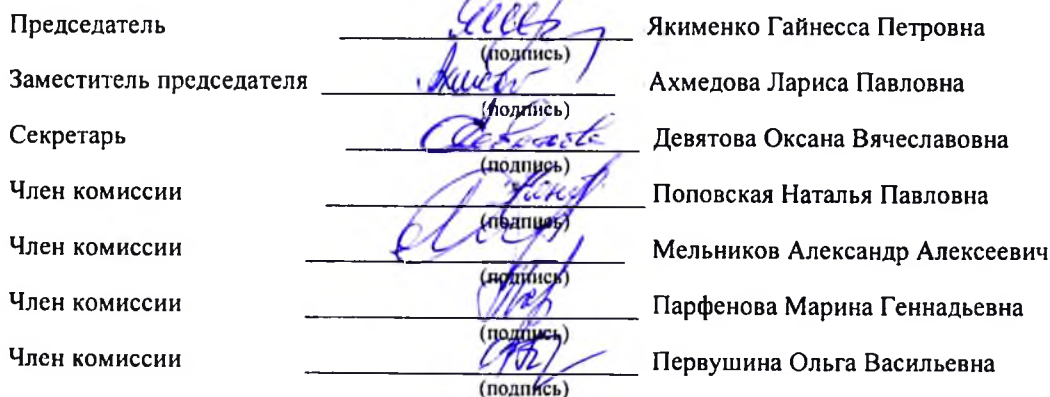 Председатель Якименко Гайнесса Петровна
(подпись)
Заместитель председателя Ахмедова Лариса Павловна
(подпись)
Секретарь Девятова Оксана Вячеславовна
(подпись)
Член комиссии Поповская Наталья Павловна
(подпись)
Член комиссии Мельников Александр Алексеевич
(подпись)
Член комиссии Парфенова Марина Геннадьевна
(подпись)
Член комиссии Первушина Ольга Васильевна
(подпись)